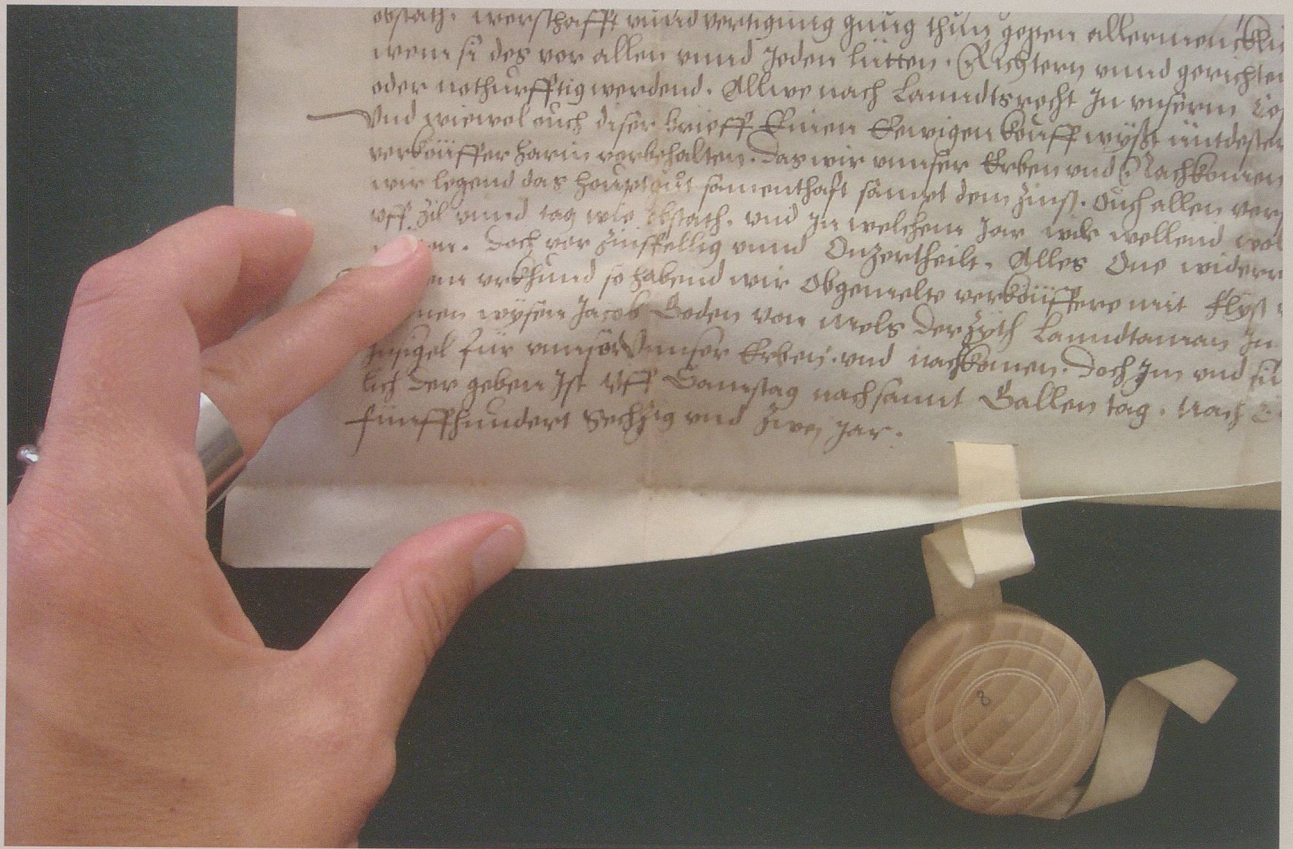 obstath. werschafft unnd vertigung gnug thun gegen allermenckli
wem si des vor allen unnd Jeden lütten. Richtern unnd gerichten
oder nothurfftig werdend. Allwe nach Lanndtsrecht In unserm
Und wiewol ouch diser brieff Einen Eewigen kouff wyßt
verköuffer harin vorbehalten. das wir unnser Erben und Nachkomen
wir legend das houptgut samenthafft sampt dem zinß. Ouch allen
uff zil unnd tag wie obstath. und In welchem Jar wir wellend
doch vor zinßfellig unnd Onzertheilt. Alles One widerr
urkhund so habend wir Obgemelte verköuffere mit flyß
wysen Jacob Goden von Mels der zyth Lanndtaman In
Insigel für unnser Erben. und nachkomen. doch Im und
lich der geben Ist Uff Samstag nach sannt Gallen tag. Nach
fünffhundert Sechzig und zwei Jar.
8